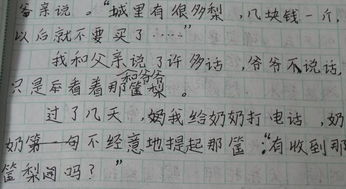 爷亲说。“城里有很多梨，几块钱一斤，
以后就不要买了……”
我和父亲说了许话，爷爷不说话，
只是呆看着那筐梨和爷爷。
过了几天，奶我给奶奶打电话，奶
奶第一句不经意地提起那筐：“有收到那
筐梨间吗？”